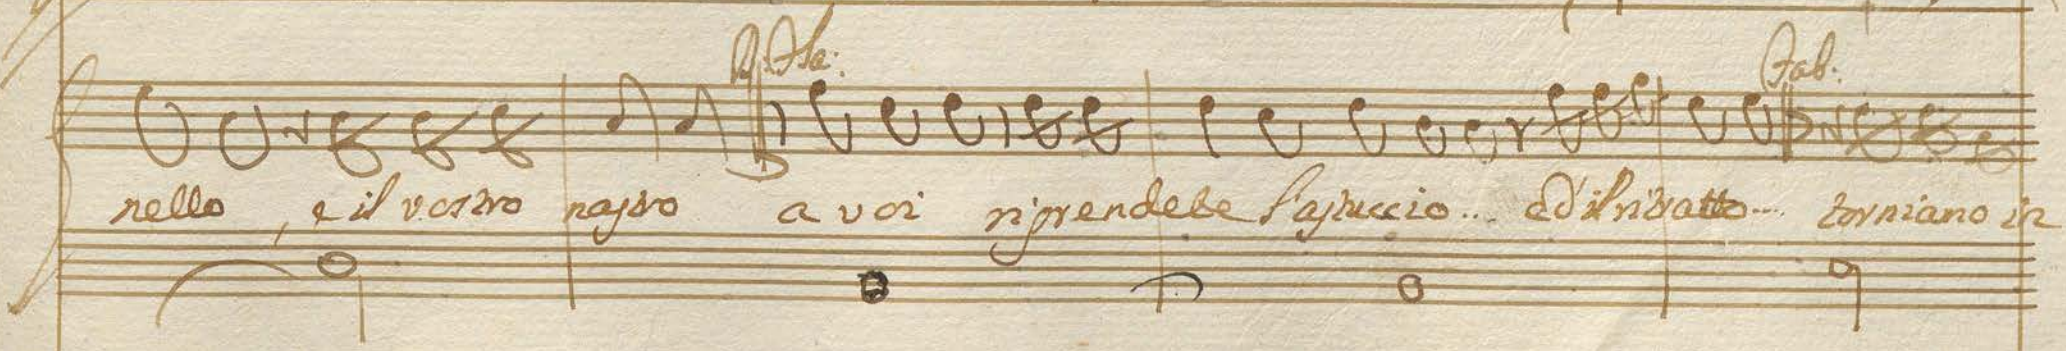 D. Fla: Fab:
nello, e il vostro nastro a voi riprendete l'astuccio... ed' il ritratto.... torniano in